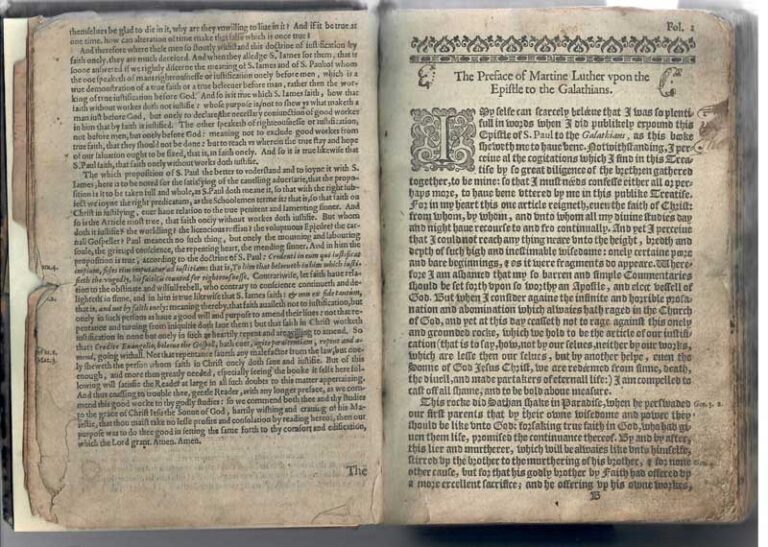 themselues be glad to die in it, why are they vnwilling to liue in it? And if it be true at
one time, how can alteration of time make that false which is once true?
And therefore where these men so stoutly withstand this doctrine of iustification by
faith onely, they are much deceiued. And when they alledge S. Iames for them, that is
soone answered if we rightly discerne the meaning of S. Iames and of S. Paul, of whom
the one speaketh of mans righteousnesse or iustification onely before men, which is a
true demonstration of a true faith or a true beleeuer before man, rather then the wor-
king of true iustification before God. And so is it true which S. Iames saith, how that
faith without workes doth not iustifie: whose purpose is, not to shew vs what maketh a
man iust before God, but onely to declare the necessary coniunction of good workes
in him that by faith is iustified. The other speaketh of righteousnesse or iustification,
not before men, but onely before God: meaning not to exclude good workes from
true faith, that they should not be done: but to teach vs wherein the true stay and hope
of our saluation ought to be fixed, that is, in faith onely. And so it is true likewise that
S. Paul saith, that faith onely without workes doth iustifie.
The which proposition of S. Paul the better to vnderstand and to ioyne it with S.
Iames, here is to be noted for the satisfying of the caueling aduersarie, that the propo-
sition is to be taken full and whole, as S. Paul doth meane it, so that with the right sub-
iect we ioyne the right predicatum, as the Schoolemen terme it: that is, so that faith on
Christ in iustifying, euer haue relation to the true penitent and lamenting sinner. And
so is the Article most true, that faith onely without workes doth iustifie. But whom
doth it iustifie? the worldling? the licencious ruffian? the voluptuous Epicure? the car-
nall Gospeller? Paul meaneth no such thing, but onely the mourning and labouring
soule, the grieued conscience, the repenting heart, the mending sinner. And in him the
proposition is true, according to the doctrine of S. Paul: Credenti in eum qui iustificat
impium, fides eius imputatur ad iustitiam: that is, To him that beleeueth in him which iusti-
fieth the vngodly, his faith is counted for righteousnesse. Contrariwise, let faith haue rela-
tion to the obstinate and wilfull rebell, who contrary to conscience continueth and de-
lighteth in sinne, and in him is true likewise that S. Iames saith: & non ex fide tantum,
that is, and not by faith onely: meaning thereby, that faith auaileth not to iustification, but
onely in such persons as haue a good will and purpose to amend their liues: not that re-
pentance and turning from iniquitie doth saue them: but that faith in Christ worketh
iustification in none but onely in such as heartily repent and are willing to amend. So
that: Credite Euangelio, beleeue the Gospell, hath euer, agite pœnitentiam, repent and a-
mend, going withall. Not that repentance saueth any malefactor from the law, but one-
ly sheweth the person whom faith in Christ onely doth saue and iustifie. But of this
enough, and more then greatly needed, especially seeing the booke it selfe here fol-
lowing will satisfie the Reader at large in all such doubts to this matter appertaining.
And thus ceasing to trouble thee, gentle Reader, with any longer preface, as we com-
mend this good worke to thy godly studies: so we commend both thee and thy studies
to the grace of Christ Iesu the Sonne of God, hartily wishing and crauing of his Ma-
iestie, that thou maist take no lesse profite and consolation by reading hereof, then our
purpose was to doe thee good in setting the same forth to thy comfort and edification,
which the Lord grant. Amen. Amen.
The
Fol. 1
The Preface of Martine Luther vpon the
Epistle to the Galathians.
I My selfe can scarcely beleeue that I was so plenti-
full in words when I did publikely expound this
Epistle of S. Paul to the Galathians, as this booke
sheweth me to haue bene. Notwithstanding, I per-
ceiue al the cogitations which I find in this Trea-
tise by so great diligence of the brethren gathered
together, to be mine: so that I must needs confesse either all or per-
haps more, to haue bene vttered by me in this publike Treatise.
For in my heart this one article reigneth, euen the faith of Christ:
from whom, by whom, and vnto whom all my diuine studies day
and night haue recourse to and fro continually. And yet I perceiue
that I could not reach any thing neare vnto the height, bredth and
depth of such high and inestimable wisedome: onely certaine pore
and bare beginnings, & as it were fragments do appeare. Where-
fore I am ashamed that my so barren and simple Commentaries
should be set forth vpon so worthy an Apostle, and elect vessell of
God. But when I consider againe the infinite and horrible profa-
nation and abomination which alwaies hath raged in the Church
of God, and yet at this day ceasseth not to rage against this onely
and grounded rocke, which we hold to be the article of our iustifi-
cation (that is to say, how, not by our selues, neither by our works,
which are lesse then our selues, but by another helpe, euen the
Sonne of God Iesus Christ, we are redeemed from sinne, death,
the diuell, and made partakers of eternall life:) I am compelled to
cast off all shame, and to be bold aboue measure.
This rocke did Sathan shake in Paradise, when he perswaded
Gen. 3. 5.
our first parents that by their owne wisedome and power they
should be like vnto God: forsaking true faith in God, who had gi-
uen them life, promised the continuance thereof. By and by after,
this lier and murtherer, which will be alwaies like vnto himselfe,
stirred by the brother to the murthering of his brother, & for none
other cause, but for that his godly brother by Faith had offered vp
a more excellent sacrifice; and he offering vp his owne workes,
B